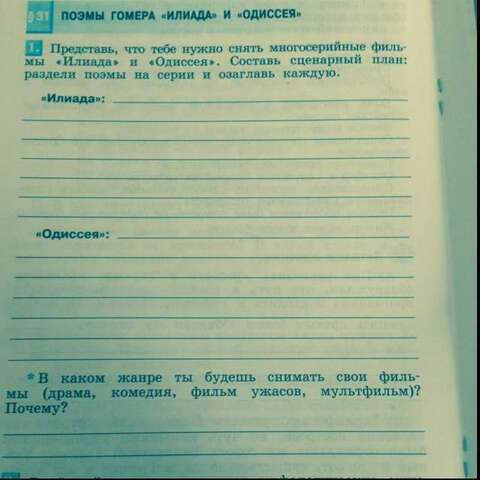 § 31 ПОЭМЫ ГОМЕРА «ИЛИАДА» И «ОДИССЕЯ»
1. Представь, что тебе нужно снять многосерийные филь-
мы «Илиада» и «Одиссея». Составь сценарный план:
раздели поэмы на серии и озаглавь каждую.
«Илиада»:
«Одиссея»:
* В каком жанре ты будешь снимать свои филь-
мы (драма, комедия, фильм ужасов, мультфильм)?
Почему?